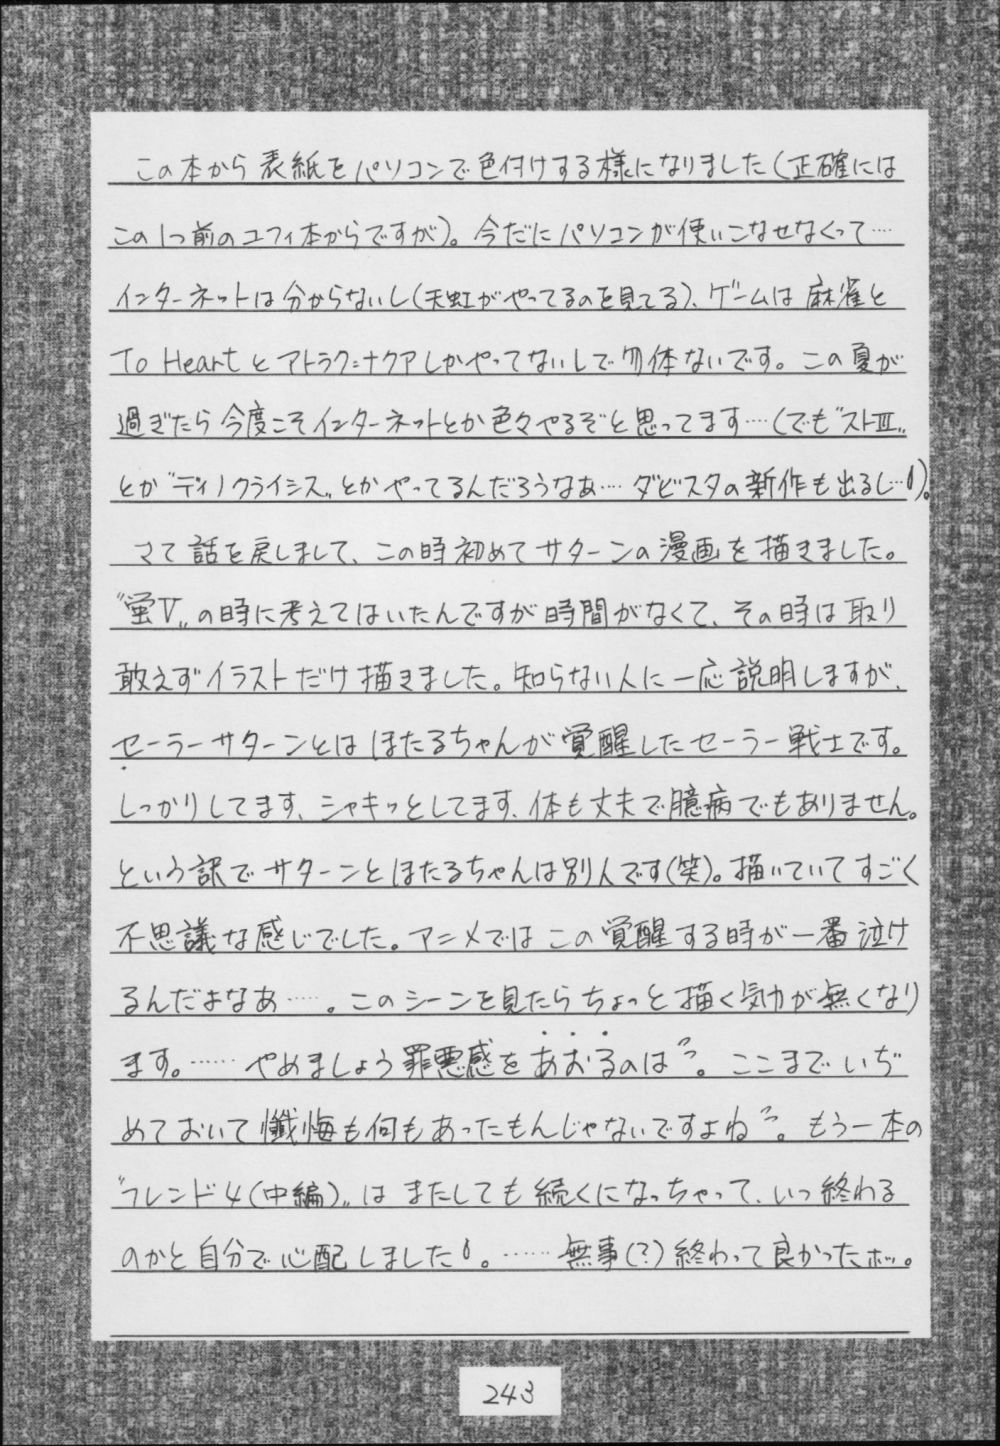 この本から表紙をパソコンで色付けする様になりました(正確には
この1つ前のユフィ本からですが)。今だにパソコンが使いこなせなくって……
インターネットは分からないし(天虹がやってるのを見てる)、ゲームは麻雀と
To Heartとアトラク=ナクアしかやってないしで勿体ないです。この夏が
過ぎたら今度こそインターネットとか色々やるぞと思ってます……(でも〝ストⅢ〟
とか〝ディノクライシス〟とかやってるんだろうなあ……ダビスタの新作も出るし…)。
さて話を戻しまして、この時初めてサターンの漫画を描きました。
〝蛍Ⅴ〟の時に考えてはいたんですが時間がなくて、その時は取り
敢えずイラストだけ描きました。知らない人に一応説明しますが、
セーラーサターンとはほたるちゃんが覚醒したセーラー戦士です。
しっかりしてます、シャキッとしてます、体も丈夫で臆病でもありません。
という訳でサターンとほたるちゃんは別人です(笑)。描いていてすごく
不思議な感じでした。アニメではこの覚醒する時が一番泣け
るんだよなあ……。このシーンを見たらちょっと描く気力が無くなり
ます。……やめましょう罪悪感をあおるのは。ここまでいぢ
めておいて懺悔も何もあったもんじゃないですよね。もう一本の
〝フレンド4(中編)〟はまたしても続くになっちゃって、いつ終わる
のかと自分で心配しました。……無事(?)終わって良かったホッ。
243